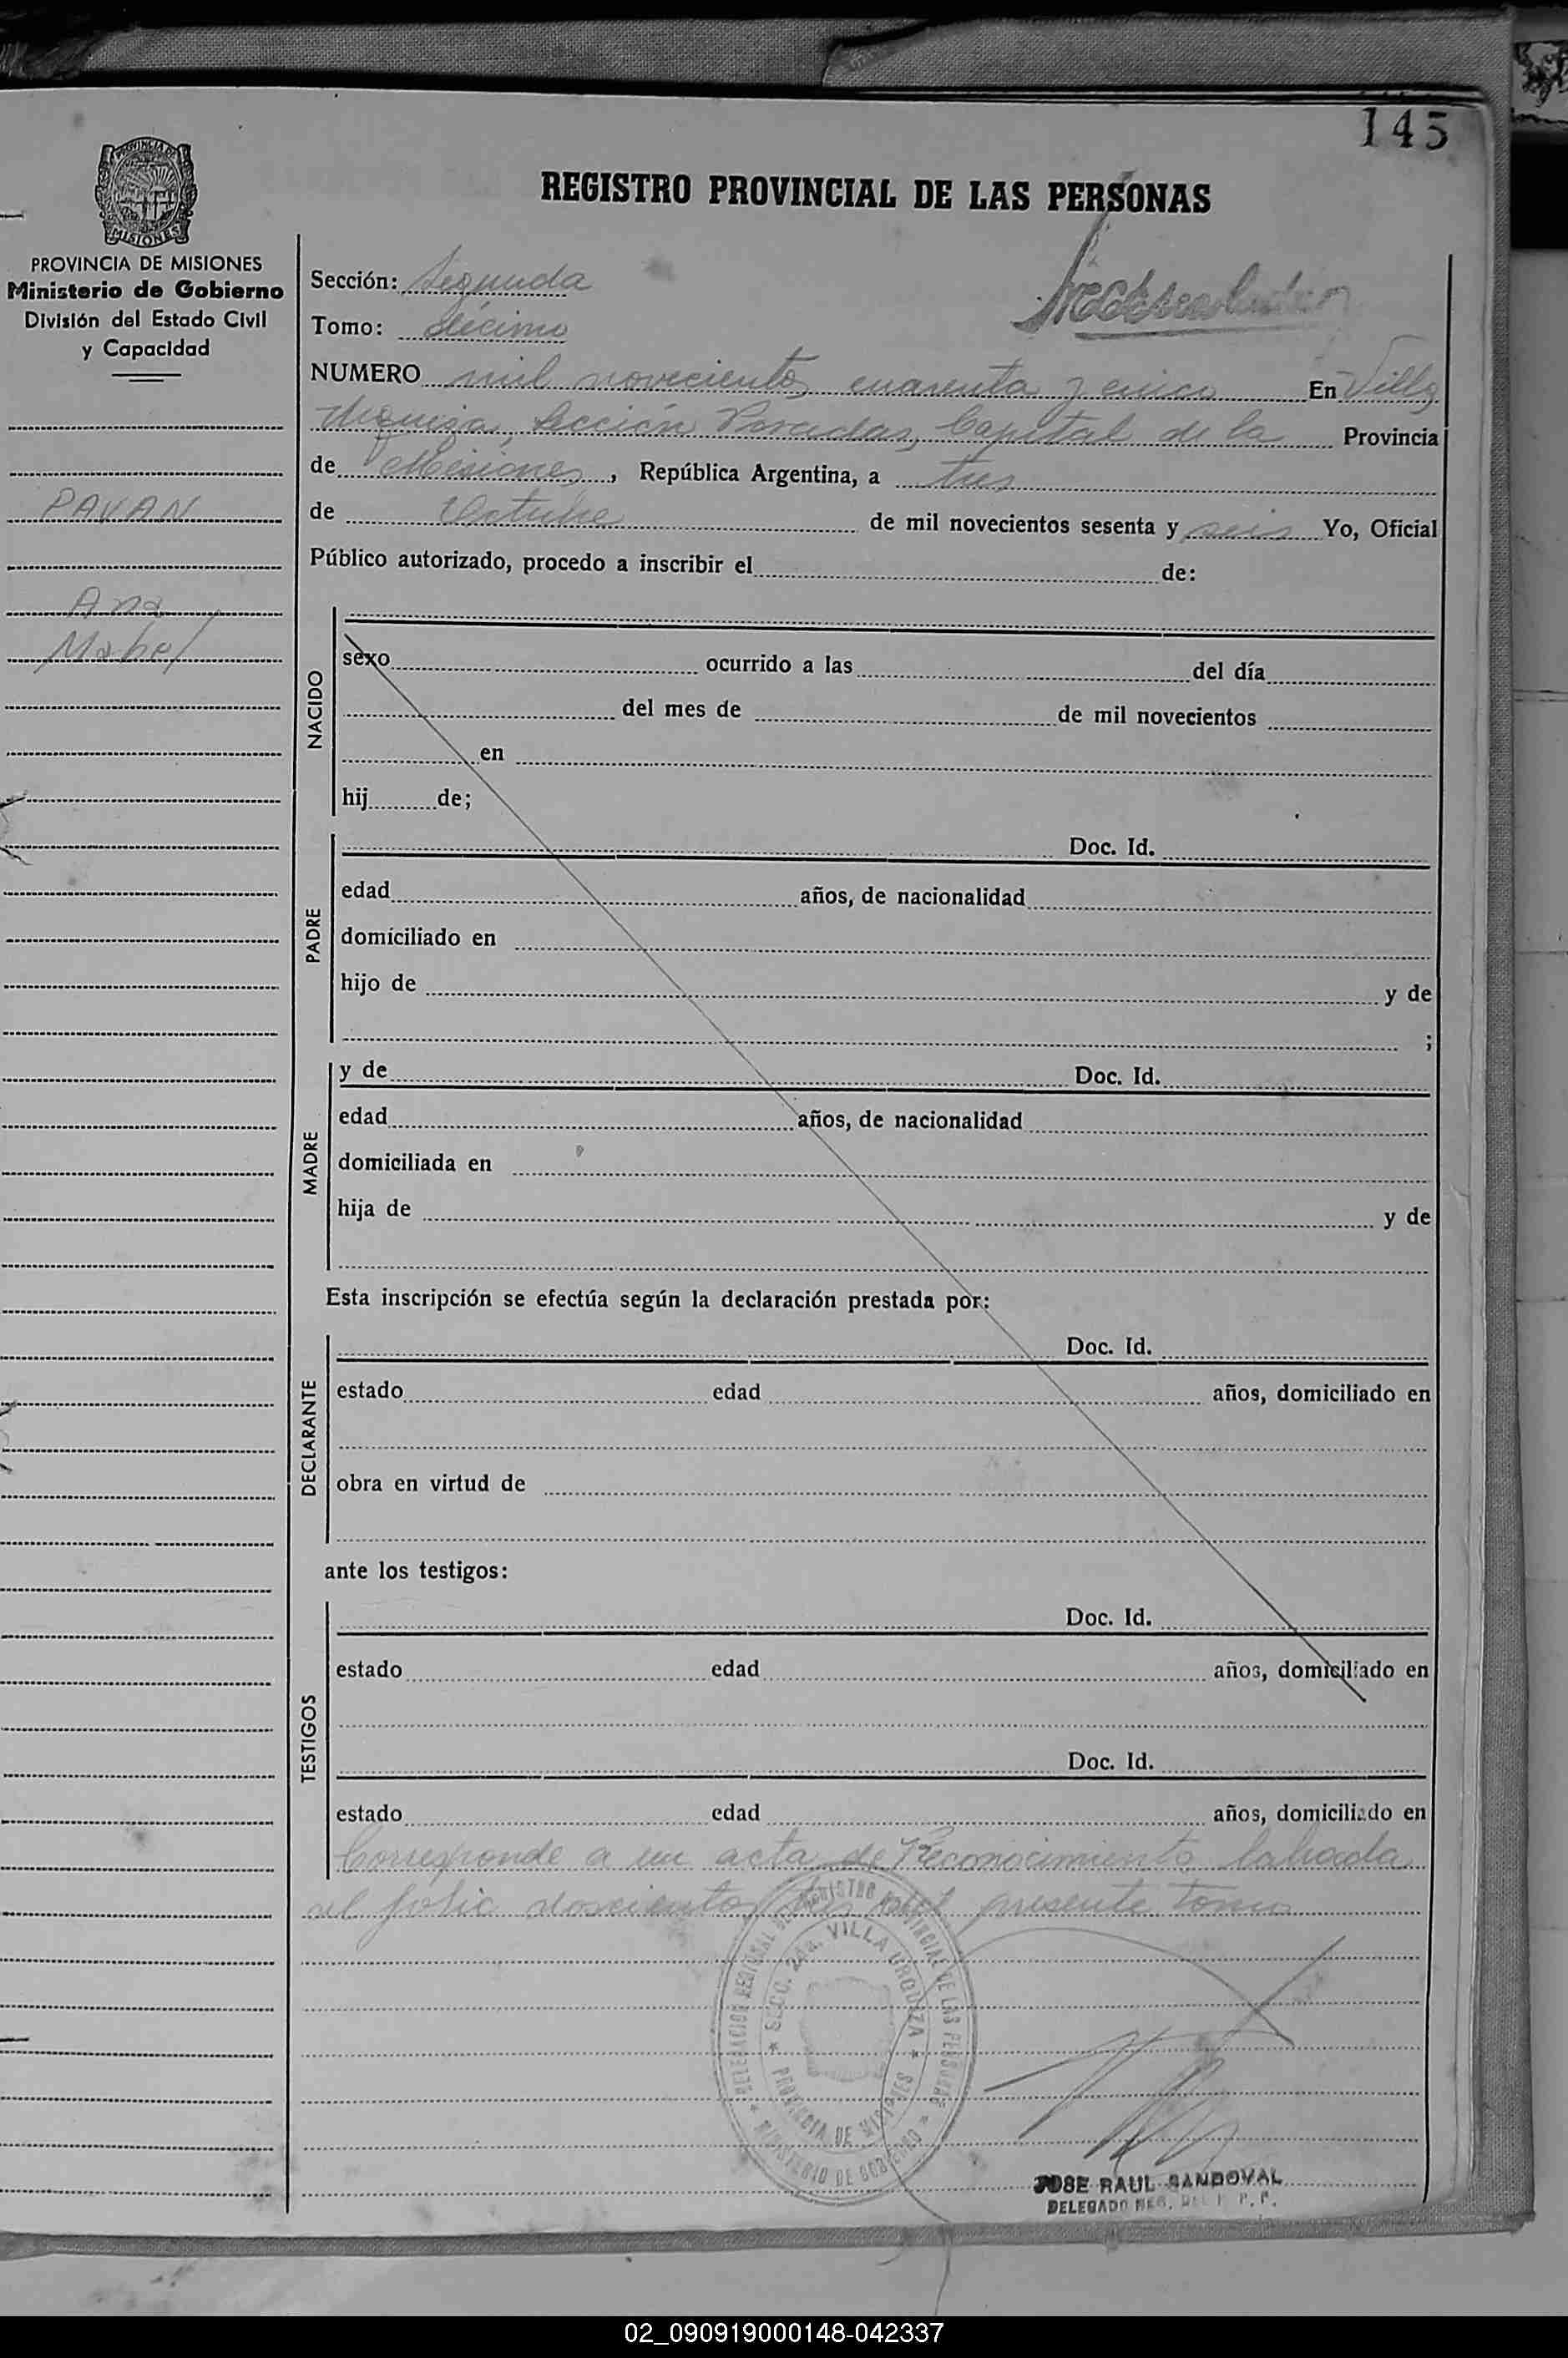 145
REGISTRO PROVINCIAL DE LAS PERSONAS
PROVINCIA DE
MISIONES
PROVINCIA DE MISIONES
Ministerio de Gobierno
División del Estado Civil
y Capacidad
PAVAN
Ana
Mabel
Sección: Segunda
Tomo: décimo
NUMERO mil novecientos cuarenta y cinco En Villa
Urquiza, Sección Posadas, Capital de la Provincia
de Misiones, República Argentina, a tres
de Octubre de mil novecientos sesenta y seis Yo, Oficial
Público autorizado, procedo a inscribir el de:
NACIDO
sexo ocurrido a las del día
del mes de de mil novecientos
en
hij de;
PADRE
Doc. Id.
edad años, de nacionalidad
domiciliado en
hijo de y de
;
MADRE
y de Doc. Id.
edad años, de nacionalidad
domiciliada en
hija de y de
Esta inscripción se efectúa según la declaración prestada por:
DECLARANTE
Doc. Id.
estado edad años, domiciliado en
obra en virtud de
ante los testigos:
TESTIGOS
Doc. Id.
estado edad años, domiciliado en
Doc. Id.
estado edad años, domiciliado en
Corresponde a un acta de Reconocimiento labrada
al folio doscientos tres del presente tomo
DELEGACION REGIONAL DEL REGISTRO PROVINCIAL DE LAS PERSONAS
SECC. 2da. VILLA URQUIZA
PROVINCIA DE MISIONES
MINISTERIO DE GOBIERNO
JOSE RAUL SANDOVAL
DELEGADO REG. DEL R. P. P.
02_090919000148-042337